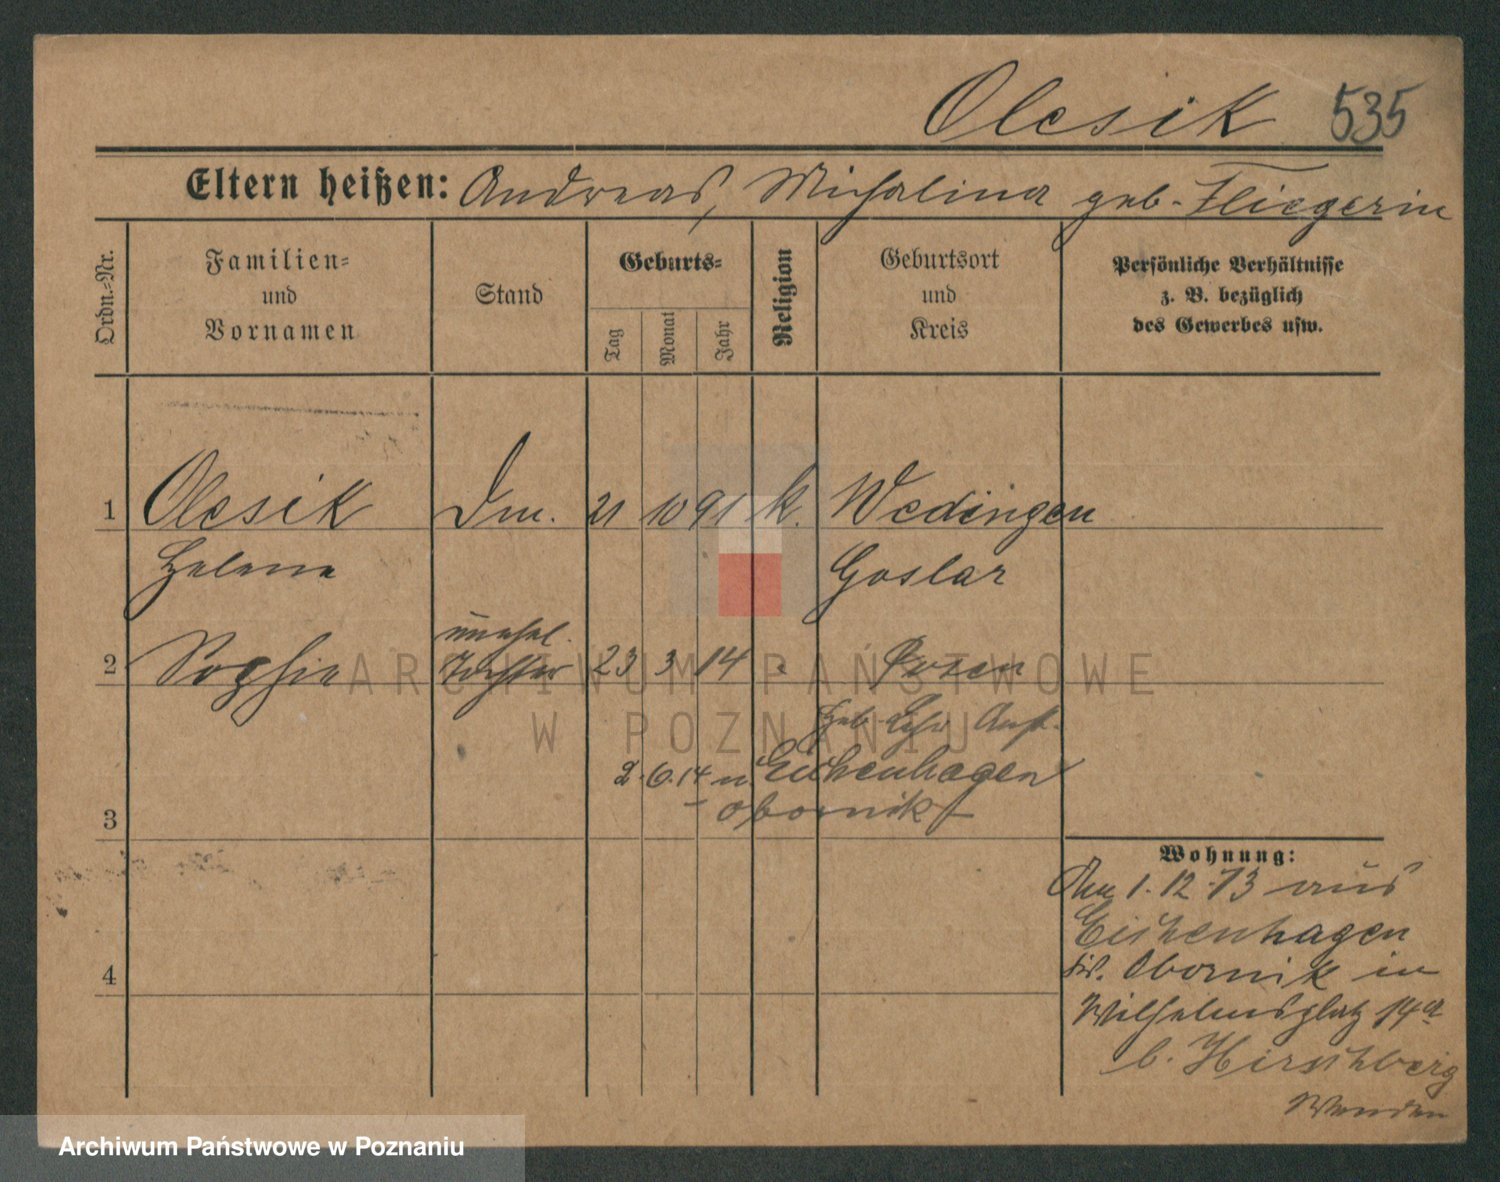 Olesik 535
Eltern heißen: Andreas, Michalina geb. Fliegerin
Ordn.-Nr.
Familien-
und
Vornamen
Stand
Geburts-
Tag
Monat
Jahr
Religion
Geburtsort
und
Kreis
Persönliche Verhältnisse
z. B. bezüglich
des Gewerbes usw.
1 Olesik Dm. 21 10 91 k. Wedingen
Helene Goslar
unehel.
2 Sophie Tochter 23 3 14 Posen
Heb. Lehr Anst.
2.6.14 n. Eichenhagen
Obornik
3
Wohnung:
Am 1.12.13 aus
Eichenhagen
Kr. Obornik in
4
Wilhelmsplatz 14a
b. Hirschberg
Wenden
ARCHIWUM PAŃSTWOWE
W POZNANIU
Archiwum Państwowe w Poznaniu